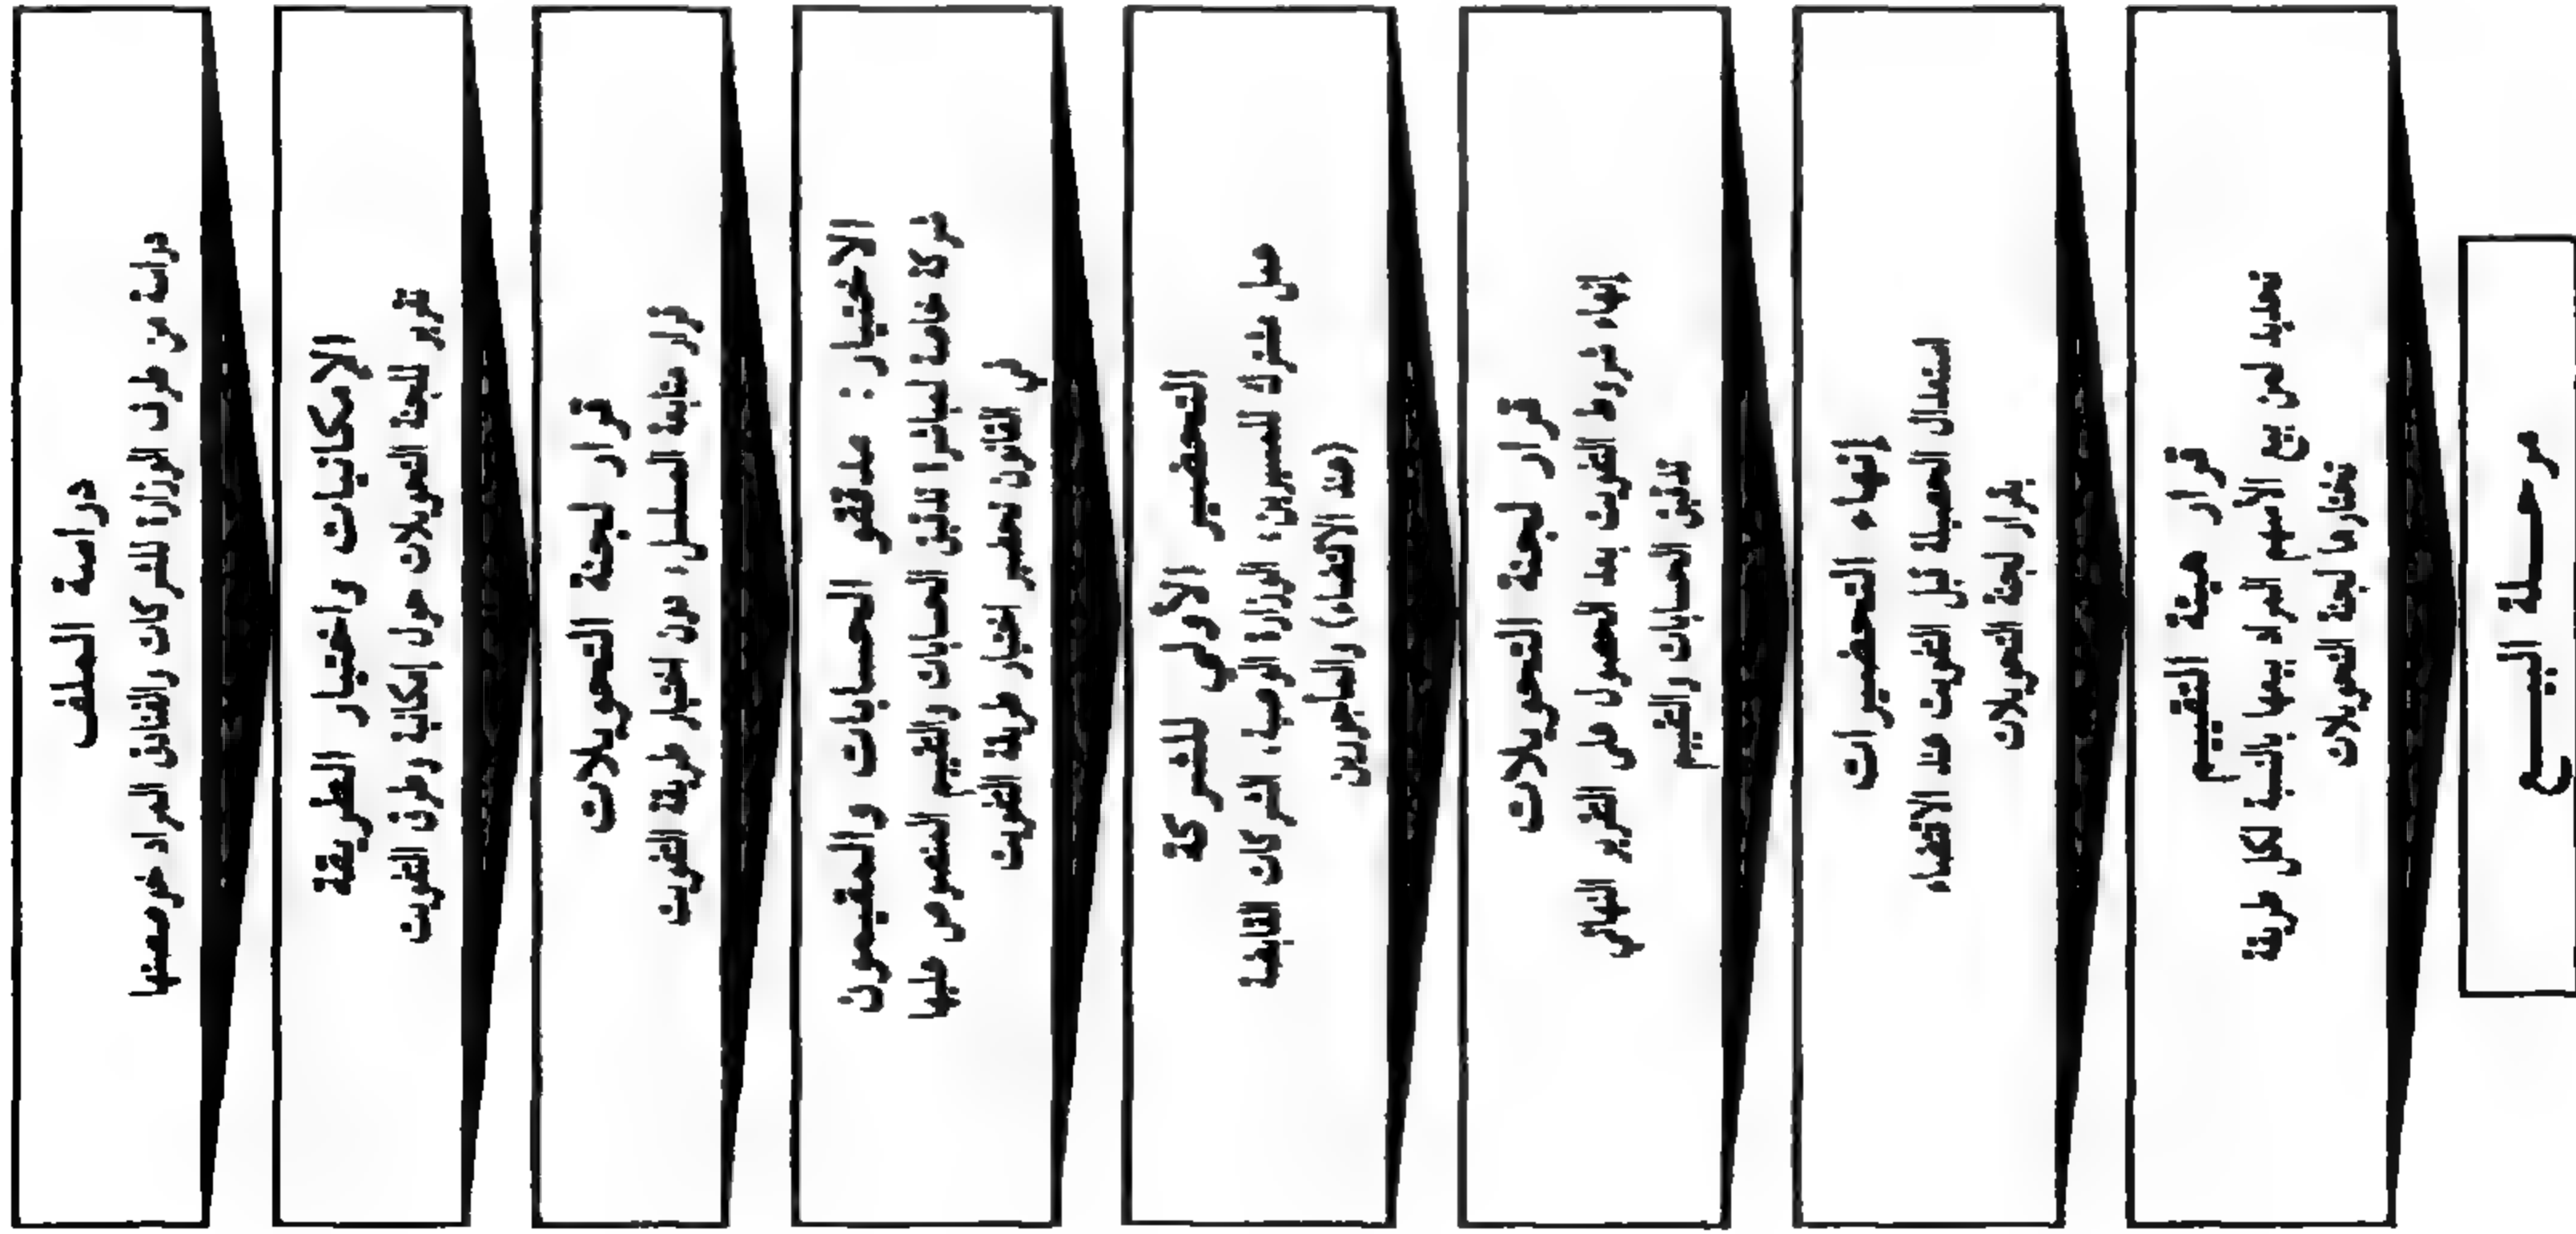 دراسة الملف
دراسة من طرف الوزارة للشركات والفنادق المراد خوصصتها
الإمكانيات واختيار الطريقة
تقرير للجنة التحويلات حول إمكانية وطرق التفويت
قرار لجنة التحويلات
قرار متابعة المسلسل، دون اختيار طريقة التفويت
الاختيار: مدققو الحسابات والمقيمون
شركة خاصة لمباشرة تدقيق الحسابات والتقييم المنصوص عليها
في القانون تحضير اختيار طريقة التفويت
التحضير الأولي للشركة
عمل مشترك للمسيرين، الوزارة الوصية، الشركات القابضة
(عند الاقتضاء) والمأجورين
قرار لجنة التحويلات
إنهاء شروط التفويت بعد الحصول على التقرير النهائي
تدقيق الحسابات والتقييم
إنهاء التحضيرات
استعمال الحصيلة قبل التفويت عند الاقتضاء
بقرار لجنة التحويلات
قرار هيئة التقييم
تحديد ثمن بيع الأسهم المراد بيعها بالنسبة لكل طريقة
تختارها لجنة التحويلات
مرحلة البيع